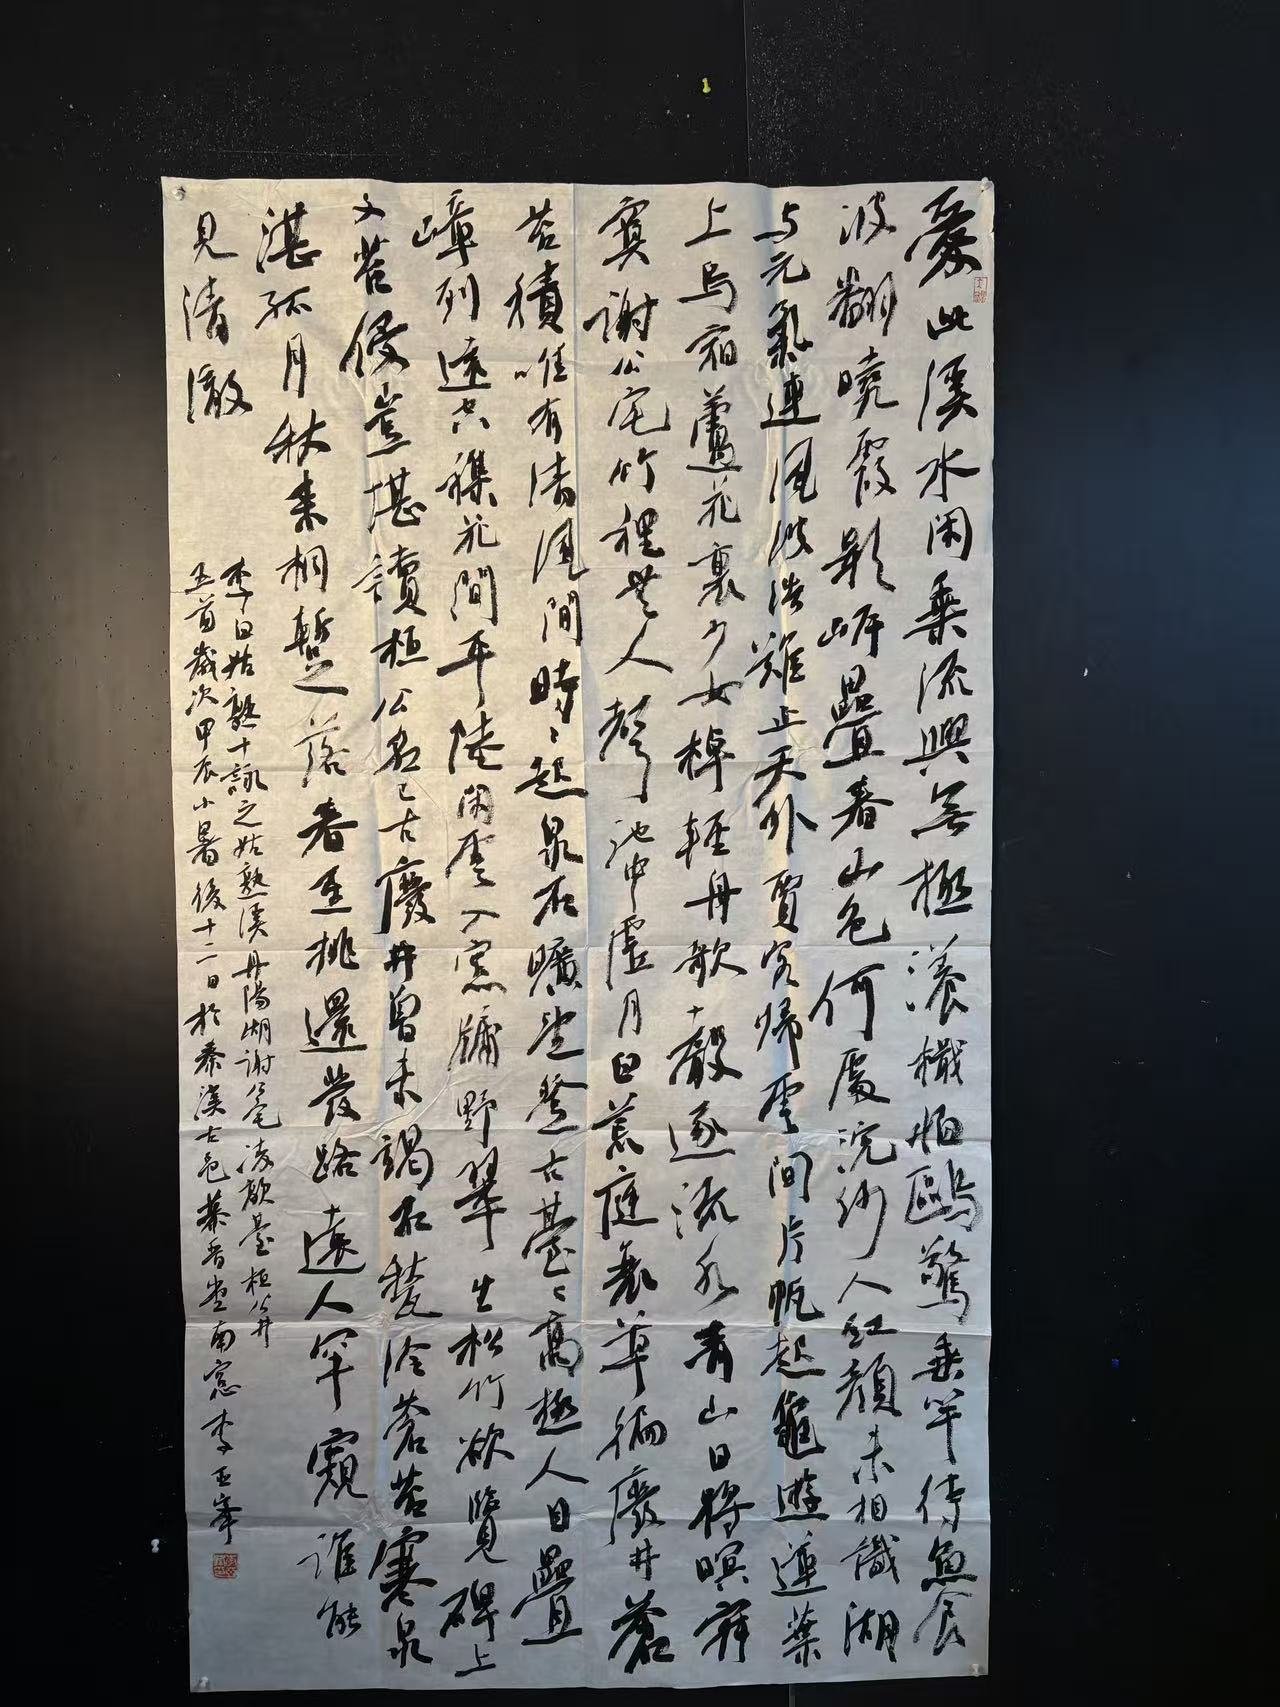 愛此溪水閑乘流興無極漾檝怕鷗驚垂竿待魚食
波翻曉霞影岸疊春山色何處浣紗人紅顏未相識湖
与元氣連風波浩難止天外賈客歸雲間片帆起龜遊蓮葉
上鳥宿蘆花裏少女棹輕舟歌聲逐流水青山日將暝寂
寞謝公宅竹裡無人聲池中虛月白荒庭衰草徧廢井蒼
苔積唯有清風閒時〻起泉石曠望登古臺〻高極人目疊
嶂列遠空雜花間平陸閑雲入窓牖野翠生松竹欲覽碑上
文苔侵豈堪讀桓公名已古廢井曾未竭石甃冷蒼苔寒泉
湛孤月秋來桐暫落春至桃還發路遠人罕窺誰能
見清澈
李白姑熟十詠之姑熟溪丹陽湖謝公宅凌歊臺桓公井
五首歲次甲辰小暑後十二日於秦溪古邑慕香堂南窓李亚峯